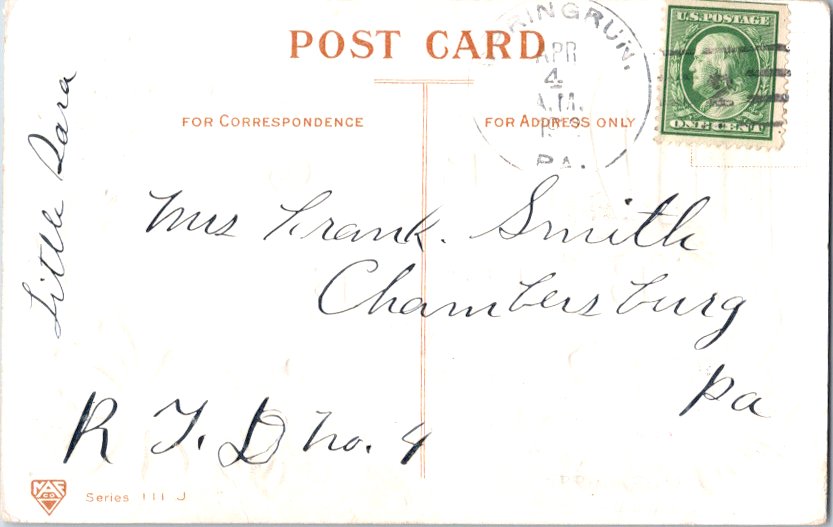 POST CARD
FOR CORRESPONDENCE
FOR ADDRESS ONLY
RINGRUN,
APR
4
A.M.
PA.
U.S. POSTAGE
ONE CENT
Little Sara
Mrs Frank. Smith
Chambersburg
Pa
R F. D no. 4
Series 111 J